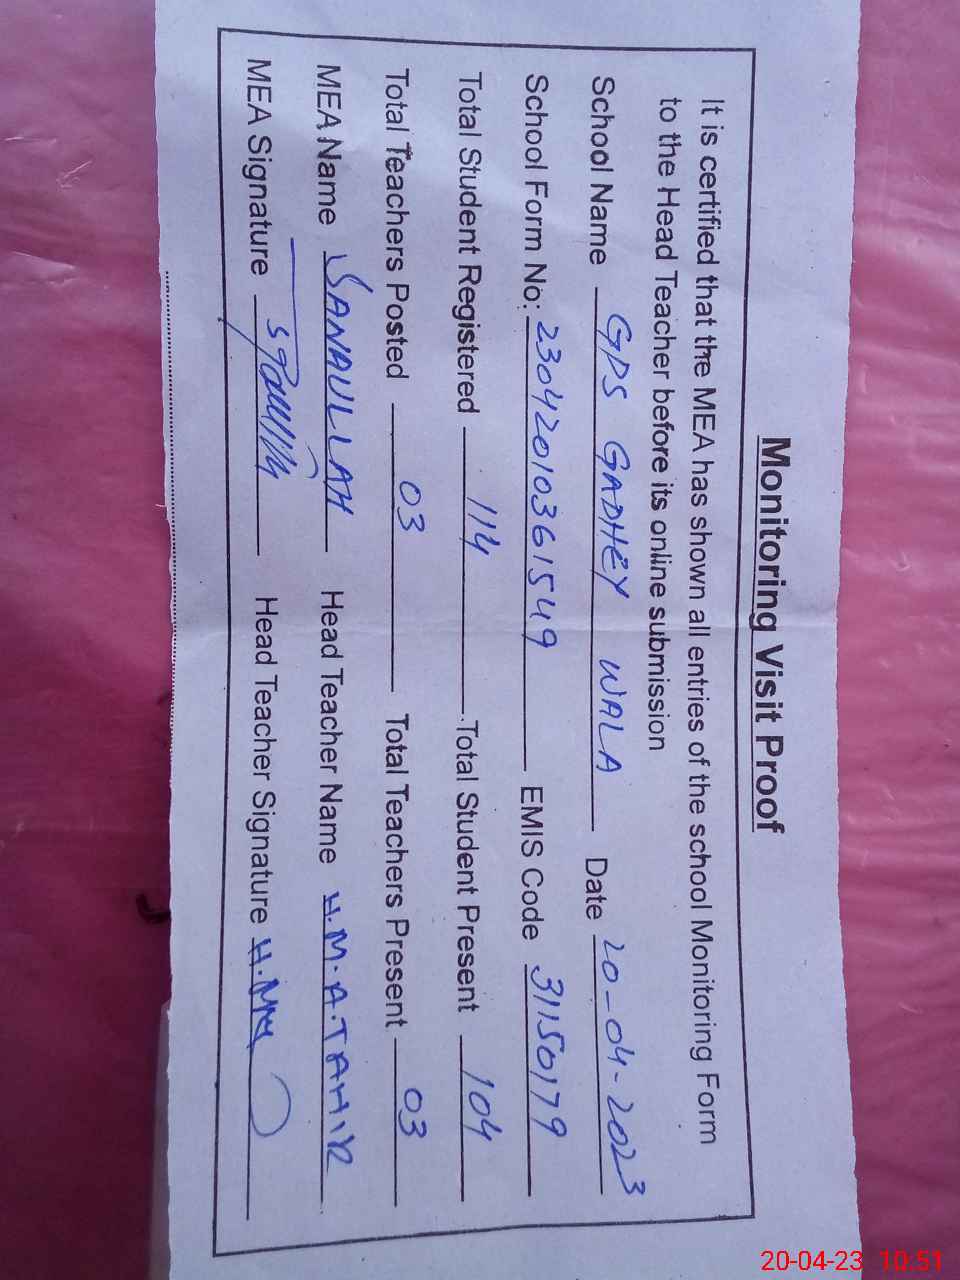 Monitoring Visit Proof
It is certified that the MEA has shown all entries of the school Monitoring Form
to the Head Teacher before its online submission
School Name GPS GADHEY WALA Date 20-04-2023
School Form No: 23042010361549 EMIS Code 31150179
Total Student Registered 114 Total Student Present 104
Total Teachers Posted 03 Total Teachers Present 03
MEA Name SANAULLAH Head Teacher Name H.M.A.TAHIR
MEA Signature Head Teacher Signature
20-04-23 10:51